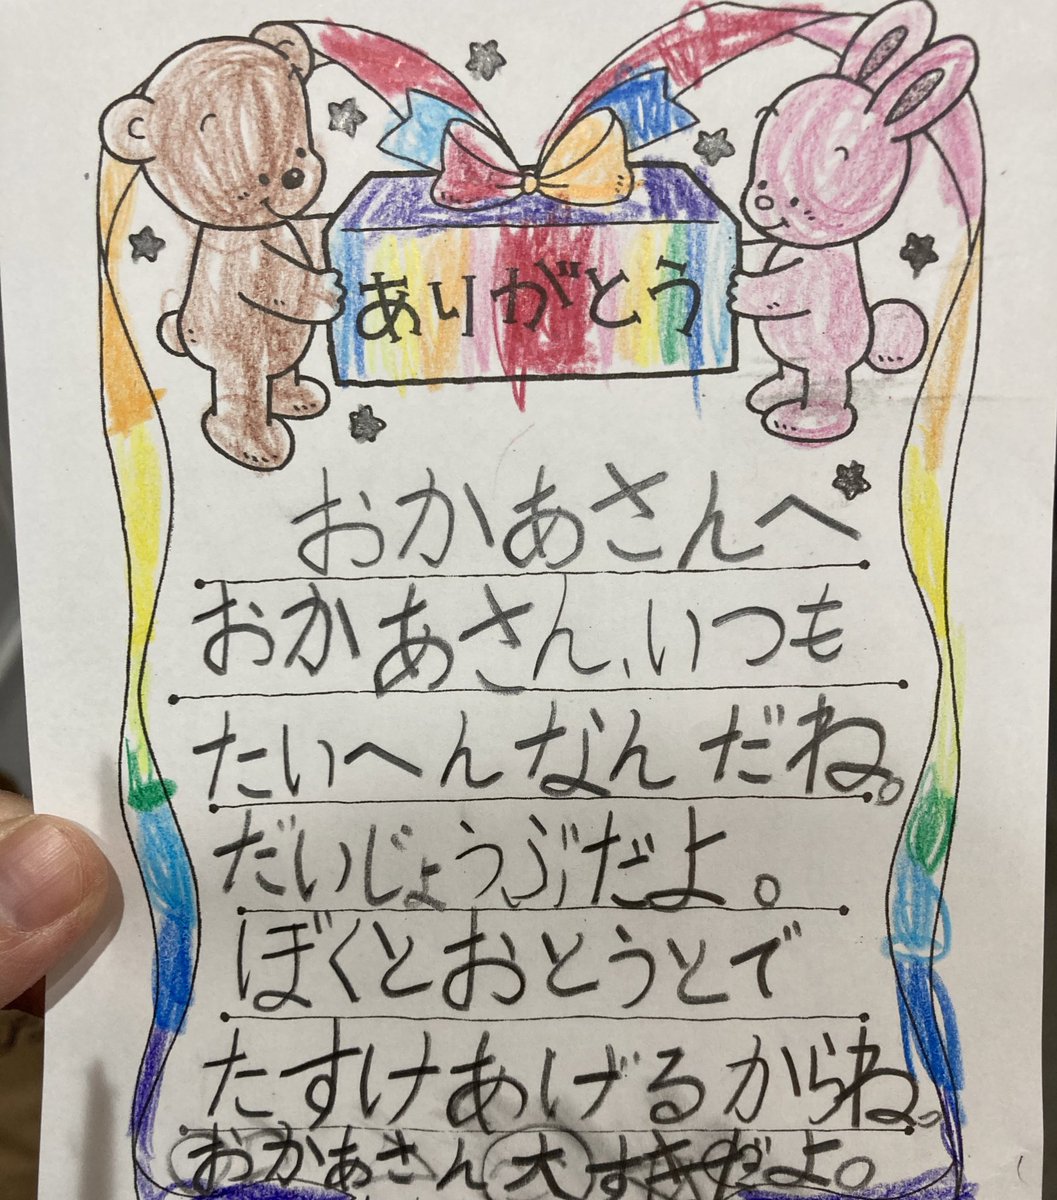 ありがとう
おかあさんへ
おかあさん、いつも
たいへんなんだね。
だいじょうぶだよ。
ぼくとおとうとで
たすけあげるからね。
おかあさん大すきだよ。